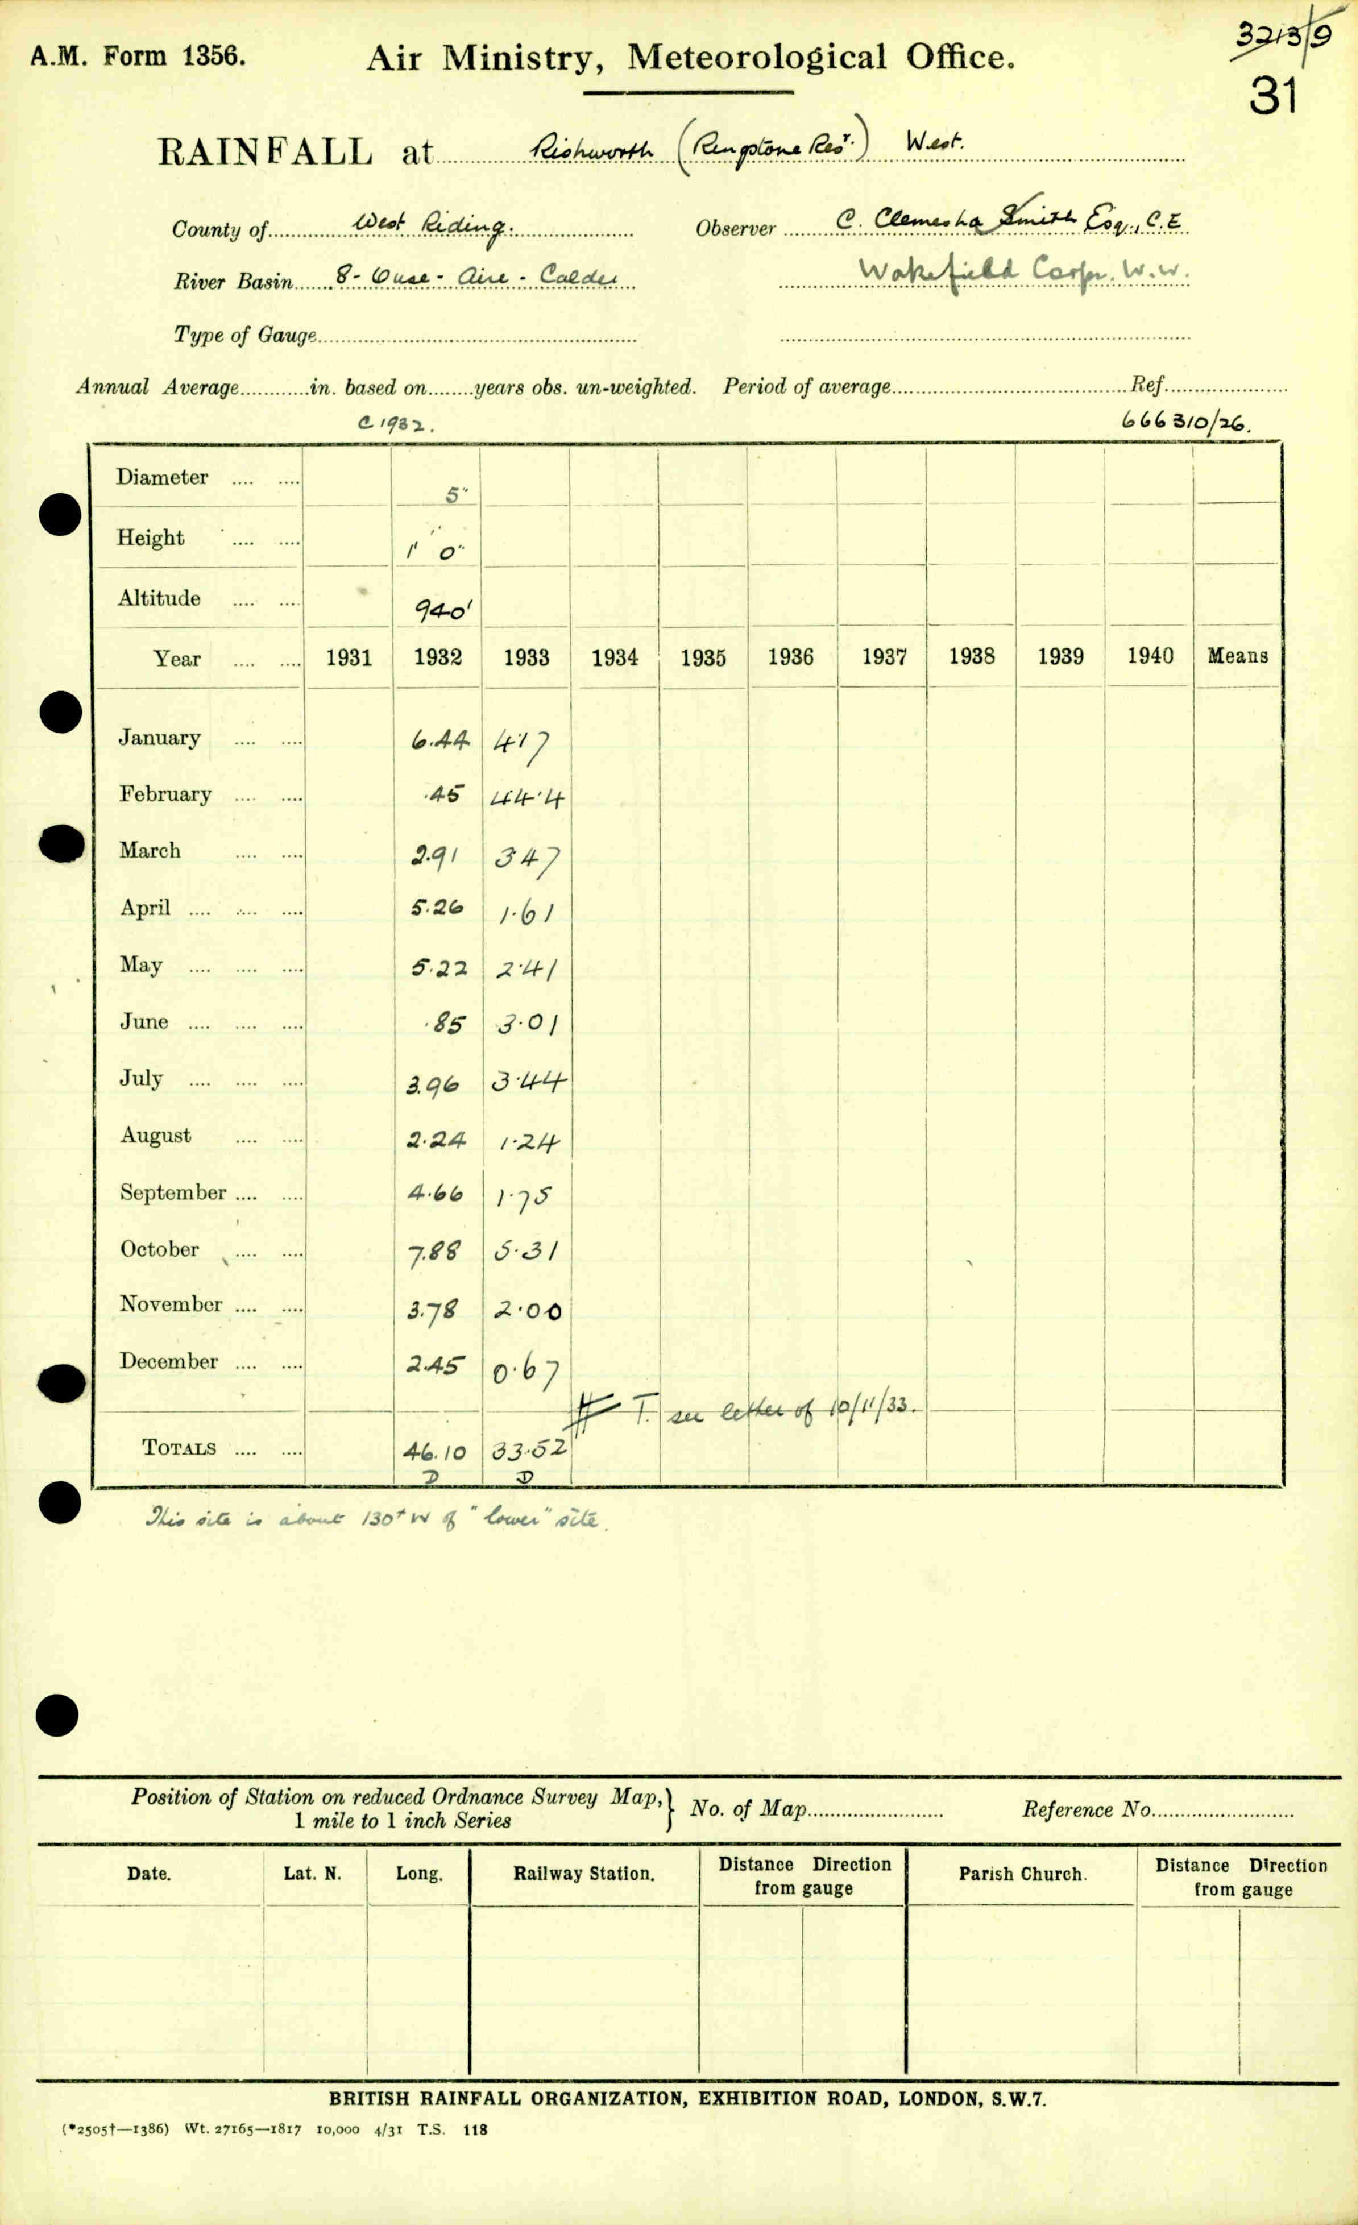 A.M. Form 1356.
Air Ministry, Meteorological Office.
3213/9
31
RAINFALL at Rishworth (Ringstone Resr.) West.
County of West Riding. Observer C. Clemesha Smith Esq., C.E
River Basin 8 - Ouse - Aire - Calder Wakefield Corpn. W.W.
Type of Gauge
Annual Average in. based on years obs. un-weighted. Period of average Ref.
C 1932. 666310/26.
Diameter 5"
Height 1' 0"
Altitude 940'
Year 1931 1932 1933 1934 1935 1936 1937 1938 1939 1940 Means
January 6.44 4.17
February .45 4.44
March 2.91 3.47
April 5.26 1.61
May 5.22 2.41
June .85 3.01
July 3.96 3.44
August 2.24 1.24
September 4.66 1.75
October 7.88 5.31
November 3.78 2.00
December 2.45 0.67
T. see letter of 10/11/33.
TOTALS 46.10 33.52
D D
This site is about 130x W of "lower" site.
Position of Station on reduced Ordnance Survey Map, } No. of Map Reference No.
1 mile to 1 inch Series
Date. Lat. N. Long. Railway Station. Distance Direction from gauge Parish Church. Distance Direction from gauge
BRITISH RAINFALL ORGANIZATION, EXHIBITION ROAD, LONDON, S.W.7.
(*2505†—1386) Wt. 27165—1817 10,000 4/31 T.S. 118